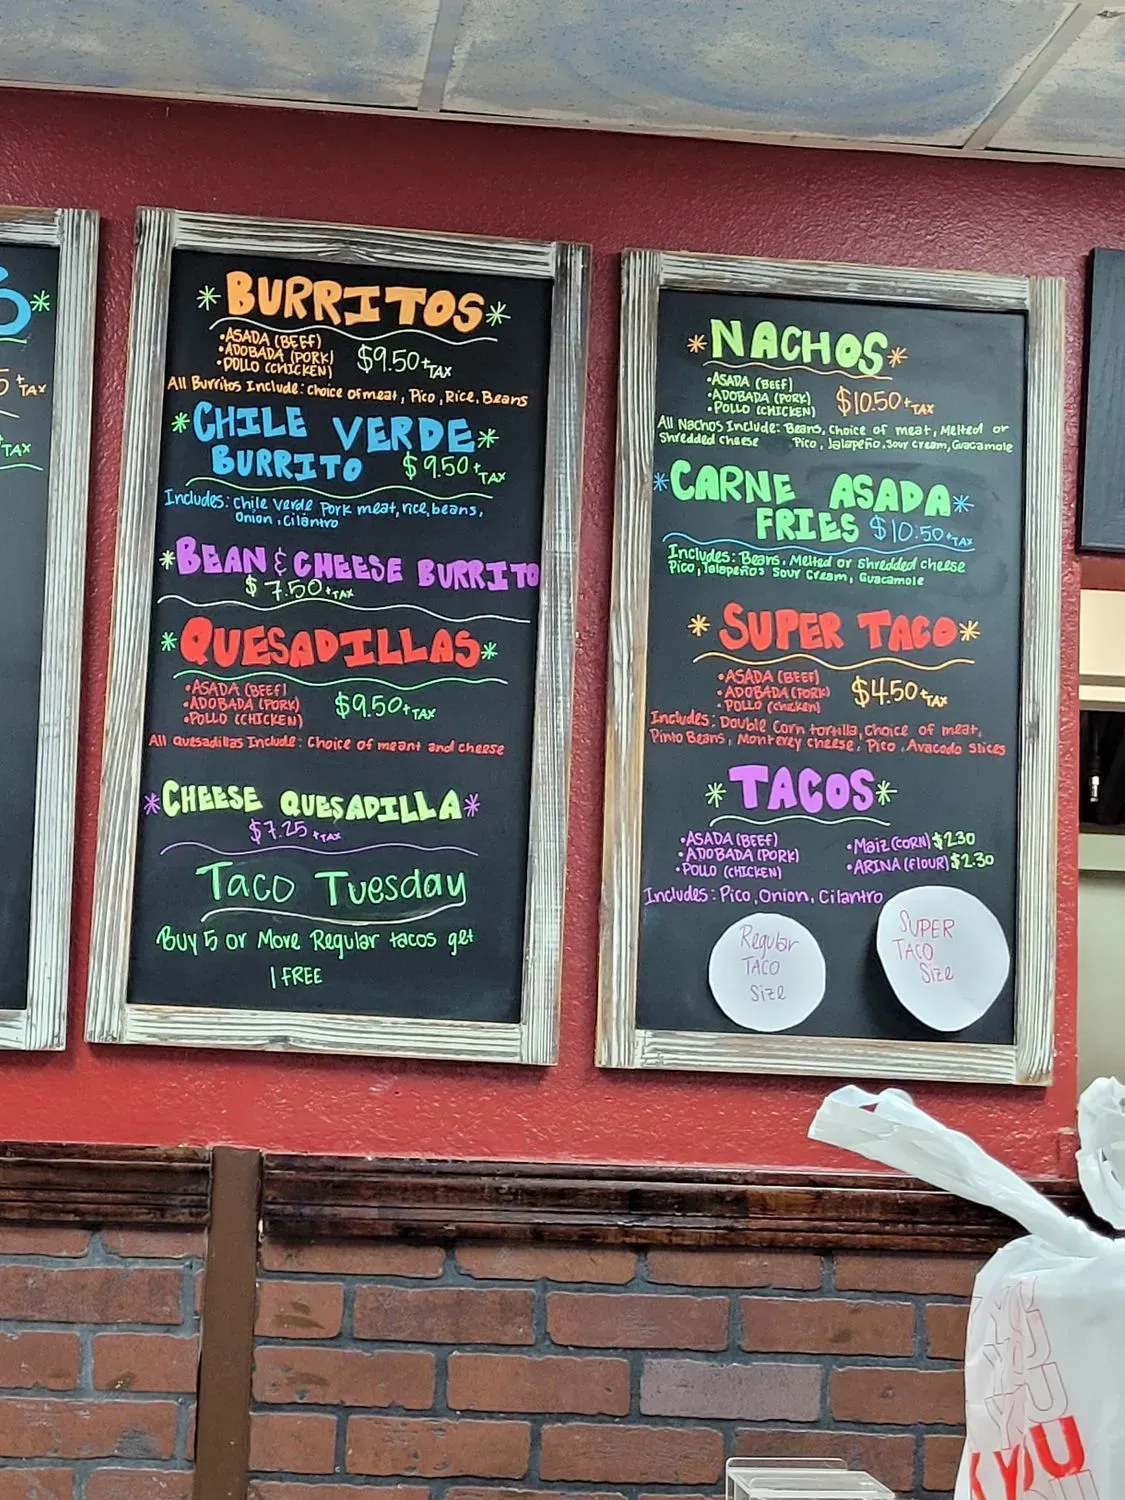 5+TAX
+TAX
*BURRITOS*
•ASADA (BEEF)
•ADOBADA (PORK)
•POLLO (CHICKEN)
$9.50+TAX
All Burritos Include: Choice of meat, Pico, Rice, Beans
*CHILE VERDE*
BURRITO $9.50+TAX
Includes: Chile Verde Pork meat, rice, beans,
Onion, Cilantro
*BEAN & CHEESE BURRITO
$7.50+TAX
*QUESADILLAS*
•ASADA (BEEF)
•ADOBADA (PORK)
•POLLO (CHICKEN)
$9.50+TAX
All Quesadillas Include: Choice of meant and cheese
*CHEESE QUESADILLA*
$7.25+TAX
Taco Tuesday
Buy 5 or More Regular tacos get
1 FREE
*NACHOS*
•ASADA (BEEF)
•ADOBADA (PORK)
•POLLO (CHICKEN)
$10.50+TAX
All Nachos Include: Beans, Choice of meat, Melted or
Shredded cheese Pico, Jalapeño, Sour Cream, Guacamole
*CARNE ASADA*
FRIES $10.50+TAX
Includes: Beans, Melted or shredded cheese
Pico, Jalapeños Sour Cream, Guacamole
*SUPER TACO*
•ASADA (BEEF)
•ADOBADA (PORK)
•POLLO (Chicken)
$4.50+TAX
Includes: Double Corn tortilla, Choice of meat,
Pinto Beans, Monterey Cheese, Pico, Avacado Slices
*TACOS*
•ASADA (BEEF)
•ADOBADA (PORK)
•POLLO (CHICKEN)
•Maiz (CORN) $2.30
•ARINA (FLOUR) $2.30
Includes: Pico, Onion, Cilantro
Regular
TACO
Size
SUPER
TACO
Size
YOU